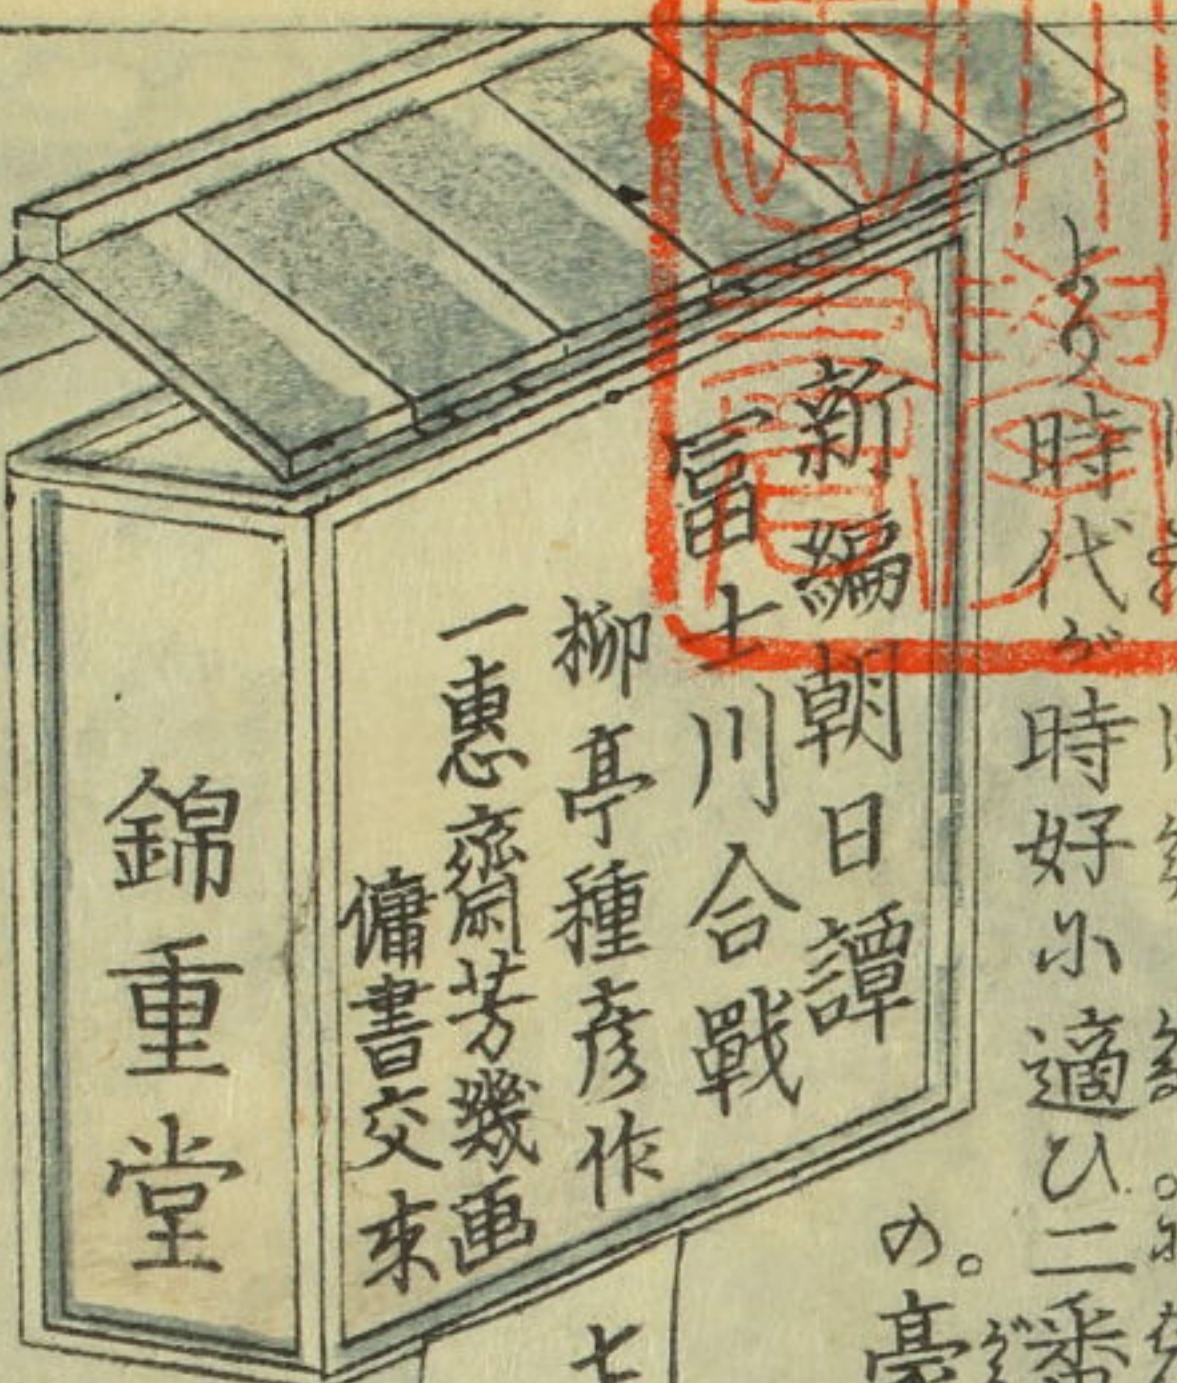 より時代が時好尓適ひ二番
の。豪
新編朝日譚
冨士川合戰
柳亭種彦作
一惠齋芳幾画
傭書交来
錦重堂
七